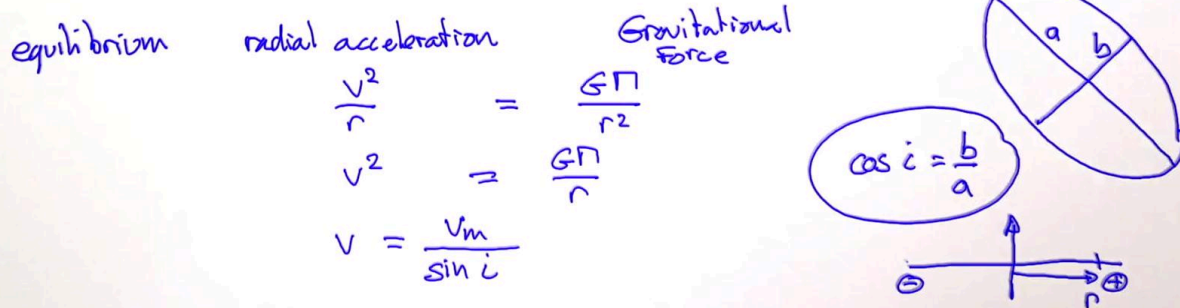 equilibrium radial acceleration Gravitational Force
v²/r = GM/r²
v² = GM/r
v = vm/sin i
a
b
cos i = b/a
⊖ r ⊕